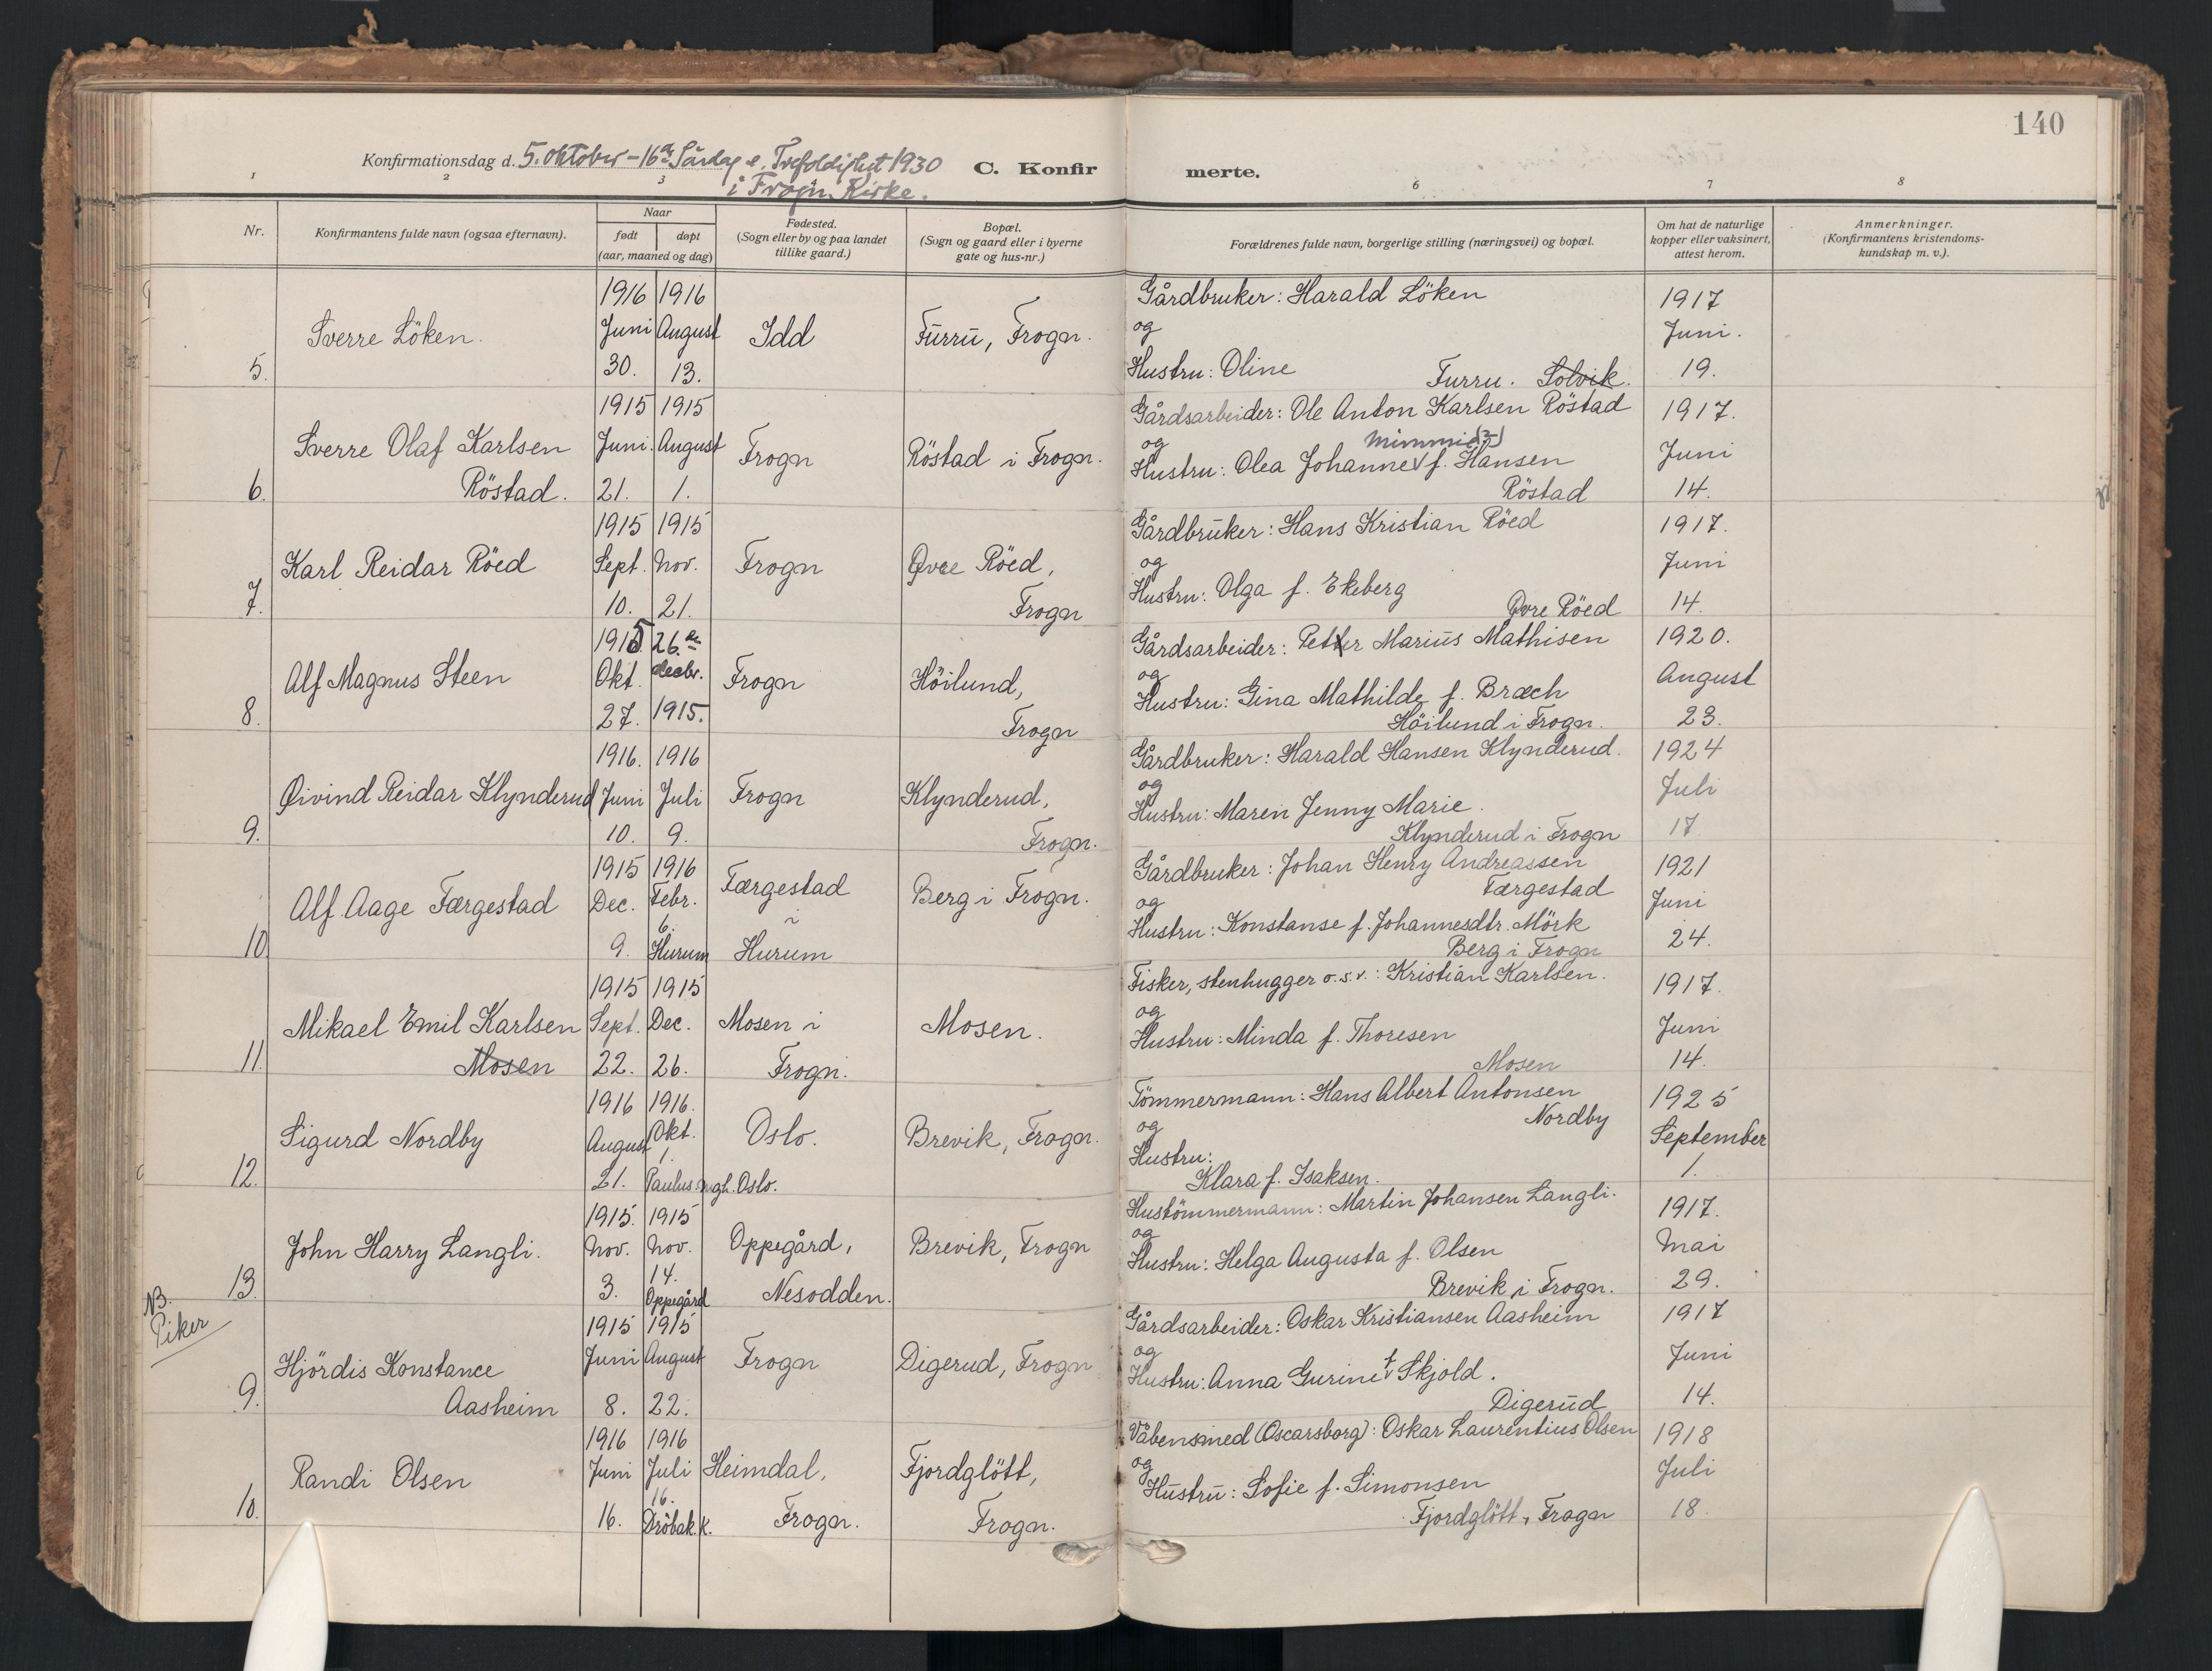 140
Konfirmationsdag d. 5. Oktober - 16de Söndag e. Trefoldighet 1930
i Frogn Kirke.
C. Konfirmerte.
1 2 3 6 7 8
Nr.
Konfirmantens fulde navn (ogsaa efternavn).
Naar
født
døpt
(aar, maaned og dag)
Fødested.
(Sogn eller by og paa landet
tillike gaard.)
Bopæl.
(Sogn og gaard eller i byerne
gate og hus-nr.)
Forældrenes fulde navn, borgerlige stilling (næringsvei) og bopæl.
Om hat de naturlige
kopper eller vaksinert,
attest herom.
Anmerkninger.
(Konfirmantens kristendoms-
kundskap m. v.).
5.
Sverre Löken.
1916
Juni
30.
1916
August
13.
Idd
Furru, Frogn.
Gårdbruker: Harald Löken
og
Hustru: Oline
Furru. Solvik.
1917
Juni.
19.
6.
Sverre Olaf Karlsen
Röstad.
1915
Juni.
21.
1915
August
1.
Frogn
Röstad i Frogn.
Gårdsarbeider: Ole Anton Karlsen Röstad
og
Mimmi (?)
Hustru: Olea Johanne f. Hansen
Röstad
1917.
Juni
14.
7.
Karl Reidar Röed
1915
Sept.
10.
1915
Nov.
21.
Frogn
Øvre Röed,
Frogn
Gårdbruker: Hans Kristian Röed
og
Hustru: Olga f. Ekeberg
Øvre Röed
1917.
Juni
14.
8.
Alf Magnus Steen
1915
Okt.
27.
26.de
decbr.
1915.
Frogn
Höilund,
Frogn
Gårdsarbeider: Petter Marius Mathisen
og
Hustru: Gina Mathilde f. Bræch
Höilund i Frogn.
1920.
August
23.
9.
Øivind Reidar Klynderud
1916.
Juni
10.
1916
Juli
9.
Frogn
Klynderud,
Frogn.
Gårdbruker: Harald Hansen Klynderud.
og
Hustru: Maren Jenny Marie.
Klynderud i Frogn
1924
Juli
17.
10.
Alf Aage Færgestad
1915
Dec.
9.
1916
Febr.
6.
Hurum
Færgestad
i
Hurum
Berg i Frogn.
Gårdbruker: Johan Henry Andreassen
Færgestad
og
Hustru: Konstanse f. Johannesdtr. Mörk
Berg i Frogn
1921
Juni
24.
11.
Mikael Emil Karlsen
Mosen
1915
Sept.
22.
1915
Dec.
26.
Mosen i
Frogn.
Mosen.
Fisker, stenhugger o.s.v.: Kristian Karlsen.
og
Hustru: Minda f. Thoresen
Mosen
1917.
Juni
14.
12.
Sigurd Nordby
1916
August
21.
1916.
Okt.
1.
Paulus mgh. Oslo.
Oslo.
Brevik, Frogn.
Tömmermann: Hans Albert Antonsen
Nordby
og
Hustru:
Klara f. Isaksen.
1925
September
1.
13.
John Harry Langli.
1915.
Nov.
3.
1915
Nov.
14.
Oppegård
Oppegård,
Nesodden.
Brevik, Frogn
Hustömmermann: Martin Johansen Langli.
og
Hustru: Helga Augusta f. Olsen
Brevik i Frogn.
1917.
Mai
29.
NB.
Piker
9.
Hjördis Konstance
Aasheim
1915
Juni
8.
1915
August
22.
Frogn
Digerud, Frogn
Gårdsarbeider: Oskar Kristiansen Aasheim
og
Hustru: Anna Gurine f. Skjold.
Digerud
1917
Juni
14.
10.
Randi Olsen
1916
Juni
16.
1916
Juli
16.
Dröbak k.
Heimdal,
Frogn.
Fjordglött,
Frogn.
Våbensmed (Oscarsborg): Oskar Laurentius Olsen
og
Hustru: Sofie f. Simonsen
Fjordglött, Frogn
1918
Juli
18.